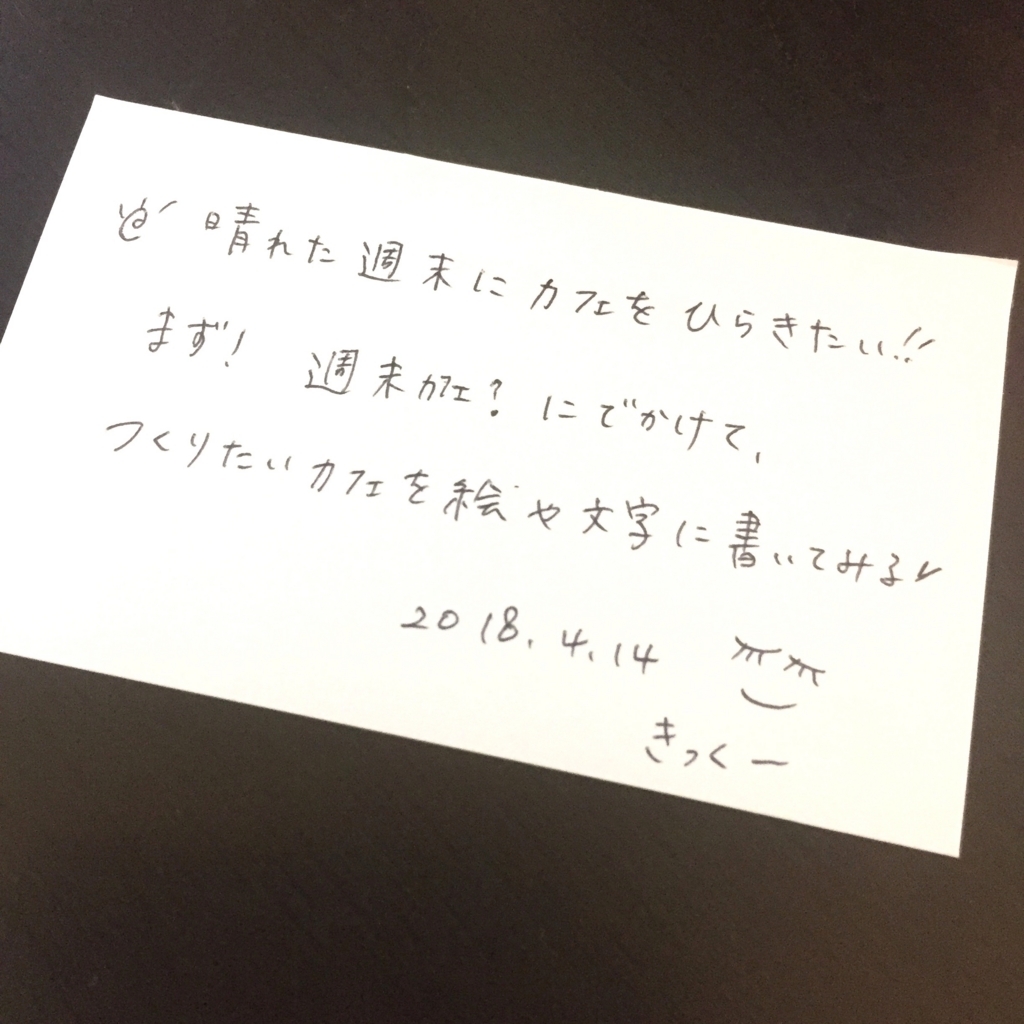 晴れた週末にカフェをひらきたい!!
まず! 週末カフェ?にでかけて、
つくりたいカフェを絵や文字に書いてみる
2018.4.14
きっくー